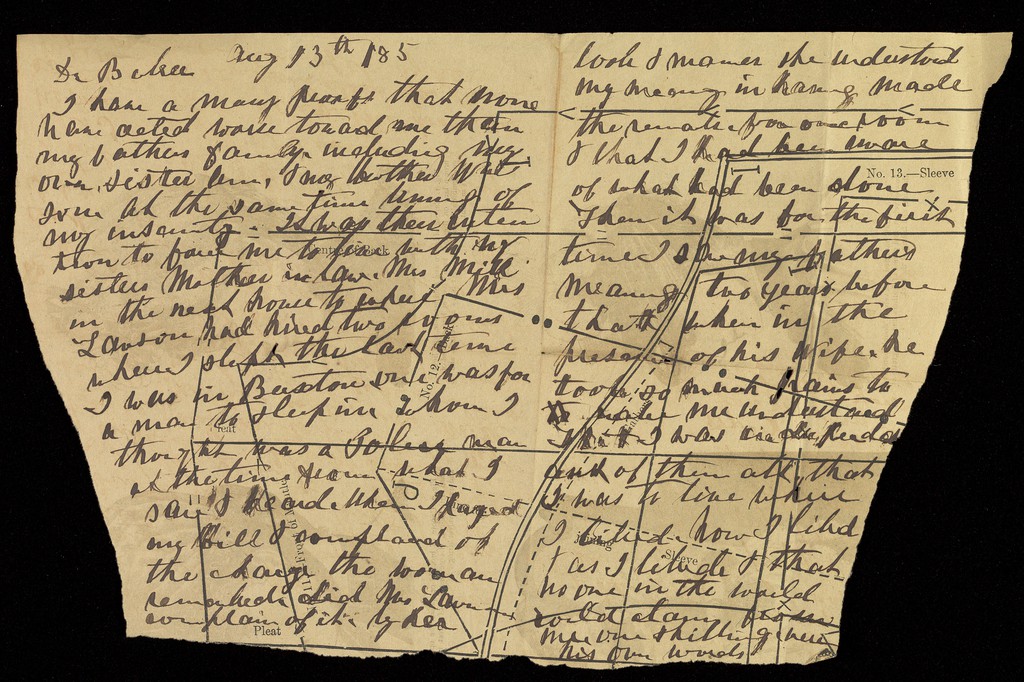 Aug 13th 185
Dr Baker
I have a many proofs that none
have acted worse toward me than
my fathers family including my
own sister Ann, & my brother Wil
som at the same time
my insanity. It was their inten
tion to force me to live with my
sisters Mother in law. Mrs Mill
in the next house to where Mrs
Lawson had hired two rooms
where I slept the last time
I was in Boston one was for
a man to sleep in whom I
thought was a Police man
at the time from what I
saw & heard. When I payed
my bill I complaned of
the charge the woman
remarked Did Mrs Lawson
complain of it. by her
look & manner she understood
my meaning in having made
the remark for one room
& that I had been aware
of what had been done
Then it was for the first
time I saw my fathers
meaning two years before
that when in the
presence of his wife. he
took so much pains to
make me understand
that I was independ
ent of them all, that
I was to live where
I liked. How I liked
& as I liked & that
no one in the world
could claim from
me one shilling were
his own words
No. 13.—Sleeve
Centre of Back
No. 12.—Back
Pleat
Sleeve
Pleat